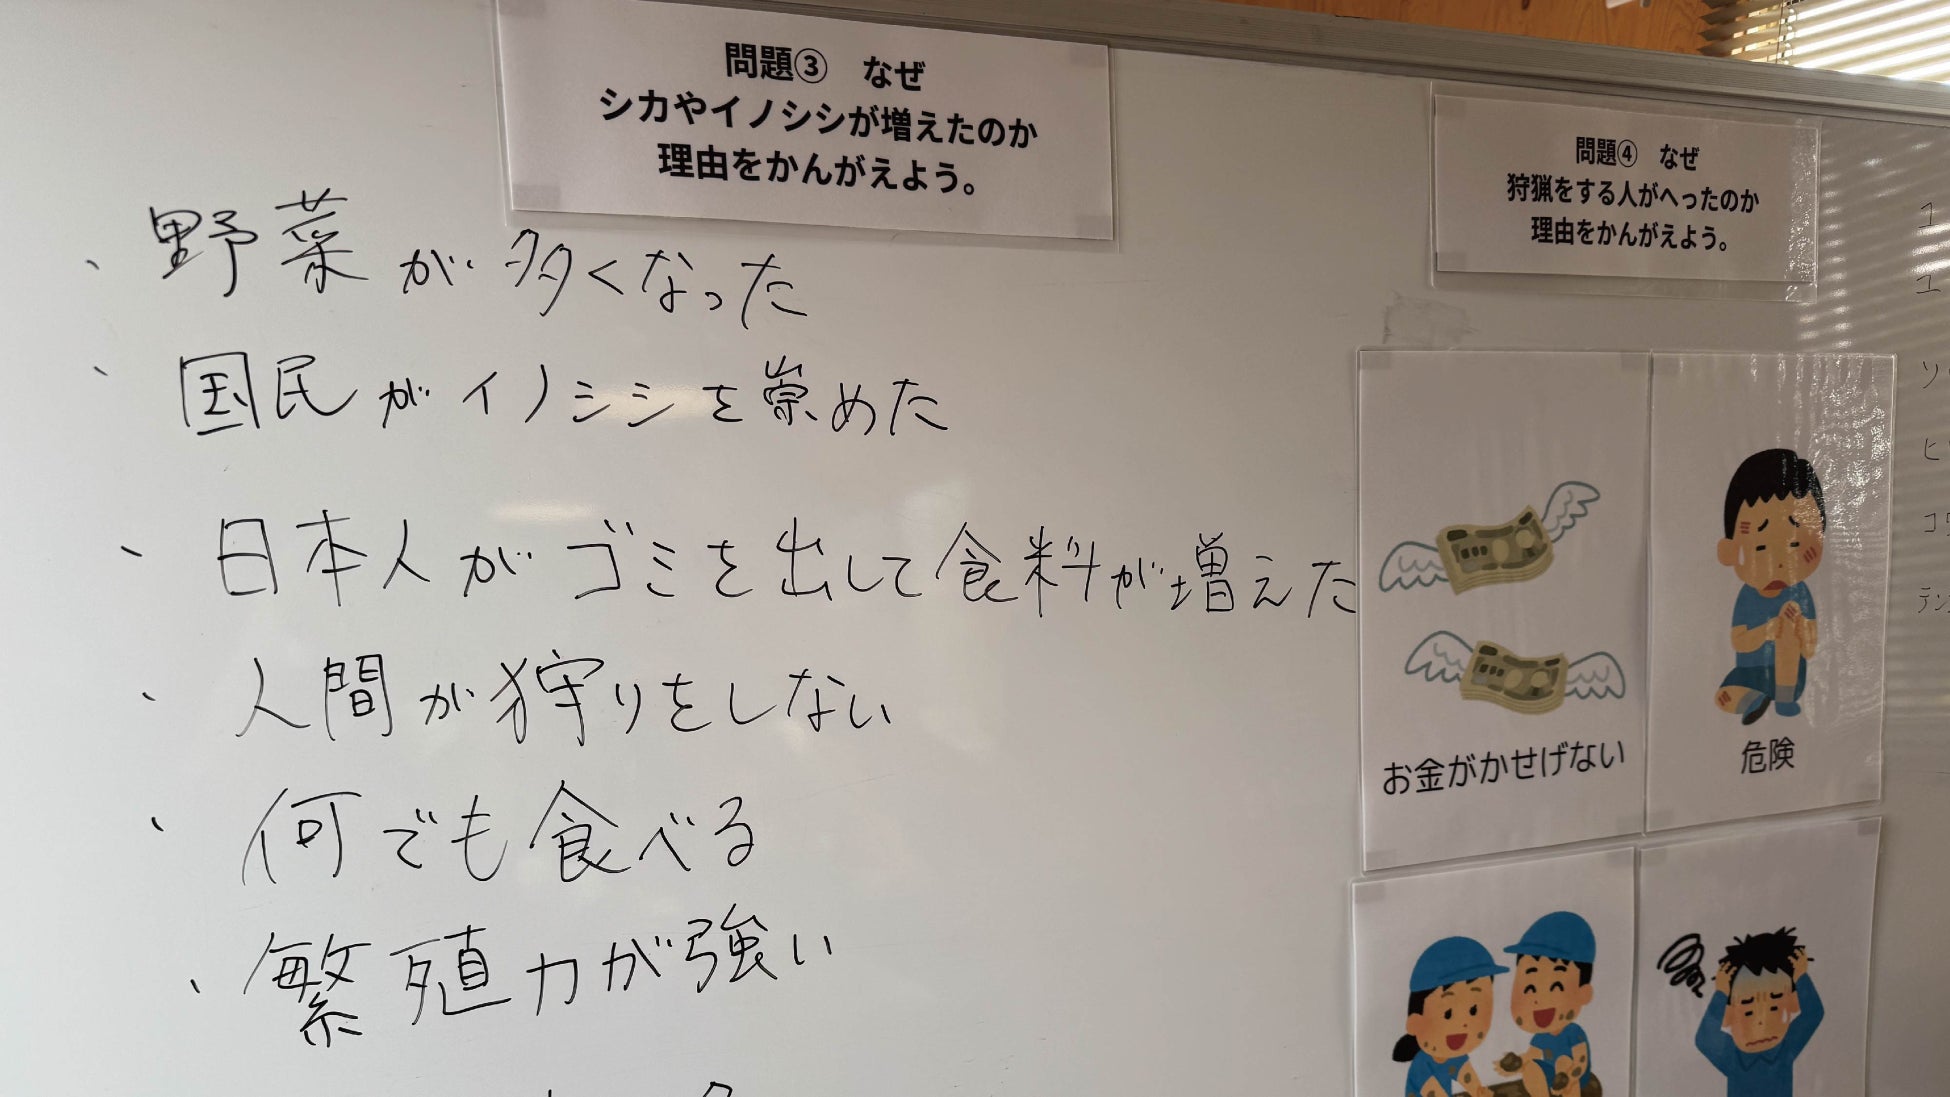 問題③ なぜ
シカやイノシシが増えたのか
理由をかんがえよう。
・野菜が多くなった
・国民がイノシシを崇めた
・日本人がゴミを出して食料が増えた
・人間が狩りをしない
・何でも食べる
・繁殖力が強い
問題④ なぜ
狩猟をする人がへったのか
理由をかんがえよう。
お金がかせげない
危険